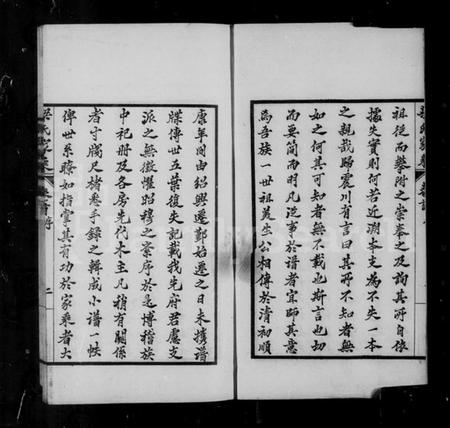 祖從而攀附之崇奉之及詢其所自依
據失實則何若近溯本支為不失一本
之親哉歸震川有言曰其所不知者無
如之何其可知者無不載也斯言也切
而要簡而明凡從事於譜者宜師其意
焉吾族一世祖茂生公相傳於清初順
康年間由紹興遷鄞始遷之日未攜譜
牒傳世五葉復失記載我先府君慮支
派之無徵懼昭穆之紊序於是博稽族
中祀册及各房先代木主凡稍有關係
者寸牋尺楮卷手錄之輯成小譜一帙
俾世系瞭如指掌其有功於家乘者大
二